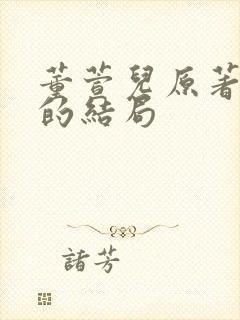 董萱兒原著
的結局
諸芳